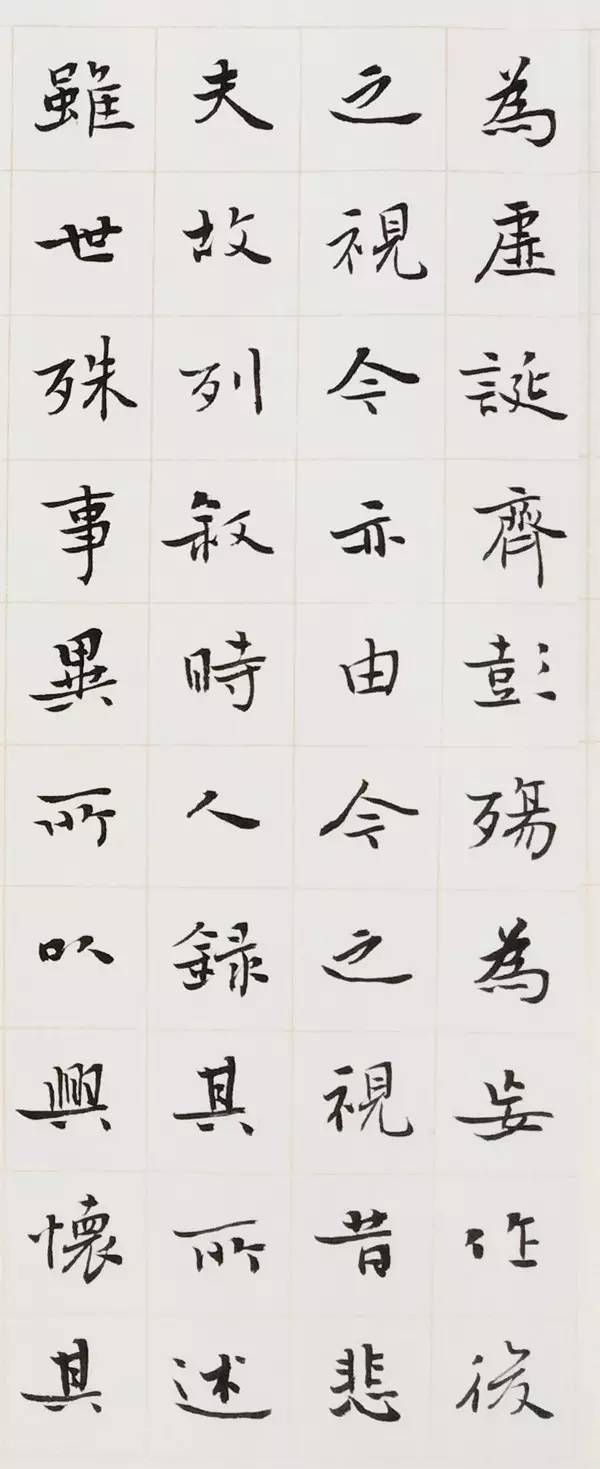 為虛誕齊彭殤為妄作後
之視今亦由今之視昔悲
夫故列敘時人錄其所述
雖世殊事異所以興懷其